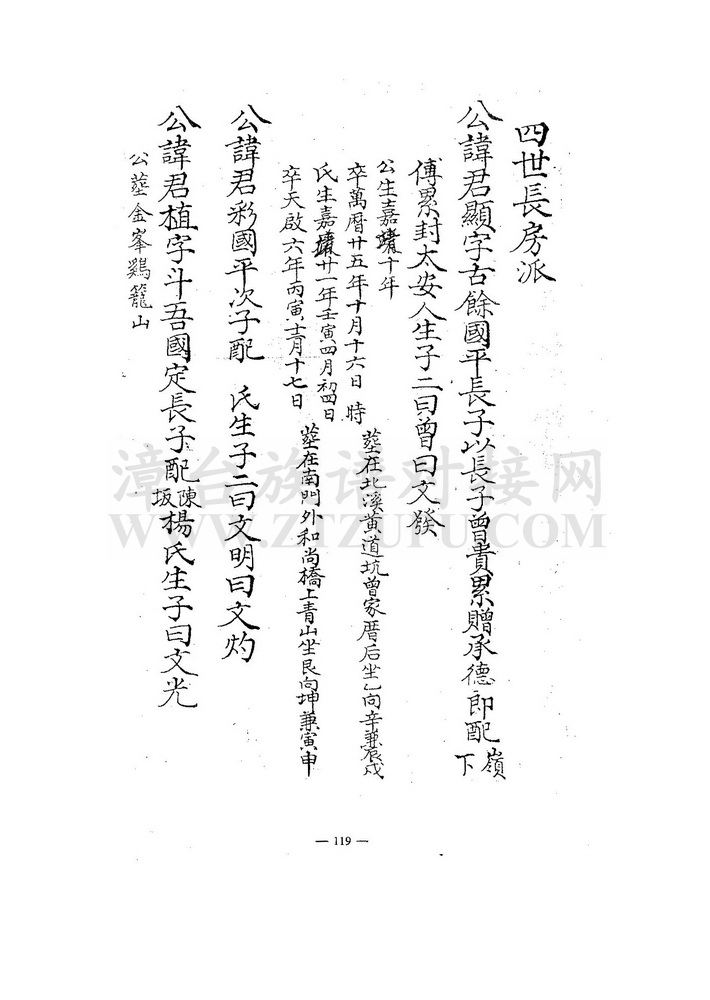 四世長房派
公諱君顯字古餘國平長子以長子曾貴累贈承德郎配嶺下
傅累封太安人生子二曰曾曰文發
公生嘉靖十年
卒萬曆廿五年十月十六日 時
葬在北溪黄道坑曾家厝后坐乙向辛兼辰戌
氏生嘉靖廿一年壬寅四月初四日
卒天啟六年丙寅十二月十七日
葬在南門外和尚橋上青山坐艮向坤兼寅申
公諱君彩國平次子配 氏生子二曰文明曰文灼
公諱君植字斗吾國定長子配陳坂楊氏生子曰文光
公葬金峯鷄籠山
漳台族谱对接网
WWW.ZTZUPU.COM
— 119 —